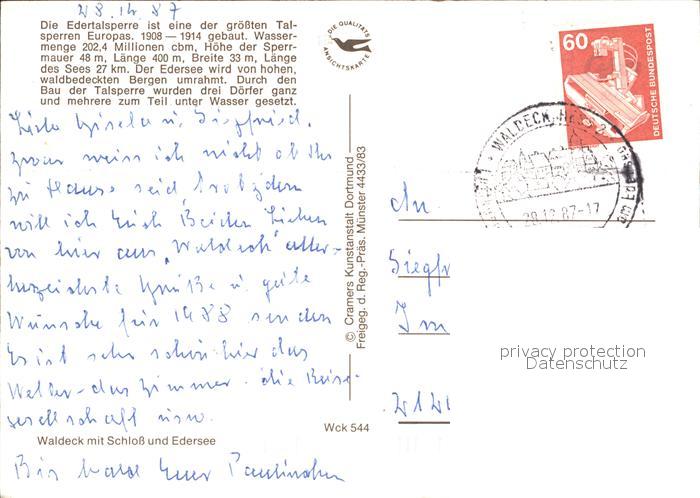 28.12.87
Die Edertalsperre ist eine der größten Tal-
sperren Europas. 1908 — 1914 gebaut. Wasser-
menge 202,4 Millionen cbm, Höhe der Sperr-
mauer 48 m, Länge 400 m, Breite 33 m, Länge
des Sees 27 km. Der Edersee wird von hohen,
waldbedeckten Bergen umrahmt. Durch den
Bau der Talsperre wurden drei Dörfer ganz
und mehrere zum Teil unter Wasser gesetzt.
DIE QUALITÄTS
ANSICHTSKARTE
Liebe Gisela u. Siegfried.
zwar weiss ich nicht ob Ihr
zu Hause seid, trotzdem
will ich Euch Beiden Lieben
von hier aus "Waldeck" aller-
herzlichste Grüße u. gute
Wünsche für 1988 senden
Es ist sehr schön hier das
Wetter - das Zimmer - die Reise-
gesellschaft usw.
Waldeck mit Schloß und Edersee
Wck 544
Bis bald Euer Paulinchen
© Cramers Kunstanstalt Dortmund
Freigeg. d. Reg.-Präs. Münster 4433/83
60
DEUTSCHE BUNDESPOST
WALDECK, HESS 2
am Ed
28.12.87-17
An
Siegfr
Im
privacy protection
Datenschutz